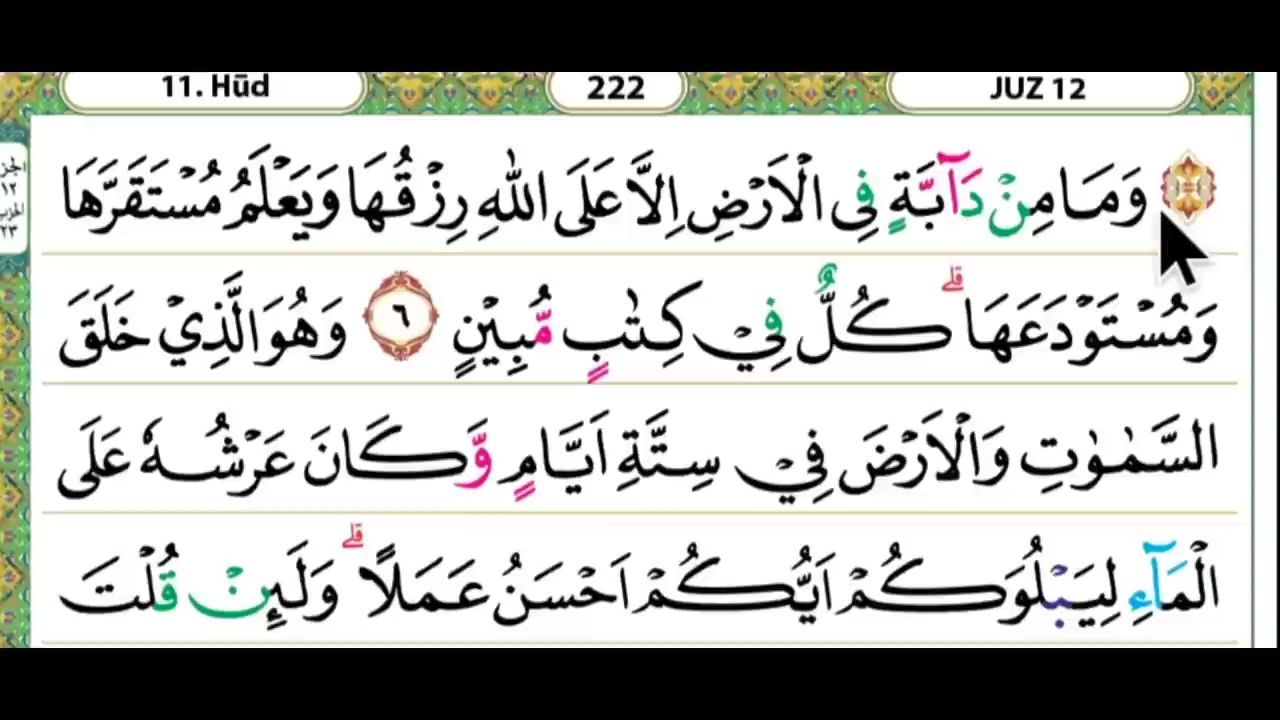 11. Hūd
222
JUZ 12
الجزء
١٢
الحزب
٢٣
وَمَا مِنْ دَاۤبَّةٍ فِى الْاَرْضِ اِلَّا عَلَى اللّٰهِ رِزْقُهَا وَيَعْلَمُ مُسْتَقَرَّهَا
وَمُسْتَوْدَعَهَا ۗ كُلٌّ فِيْ كِتٰبٍ مُّبِيْنٍ ٦ وَهُوَ الَّذِيْ خَلَقَ
السَّمٰوٰتِ وَالْاَرْضَ فِيْ سِتَّةِ اَيَّامٍ وَّكَانَ عَرْشُهٗ عَلَى
الْمَاۤءِ لِيَبْلُوَكُمْ اَيُّكُمْ اَحْسَنُ عَمَلًا ۗ وَلَىِٕنْ قُلْتَ